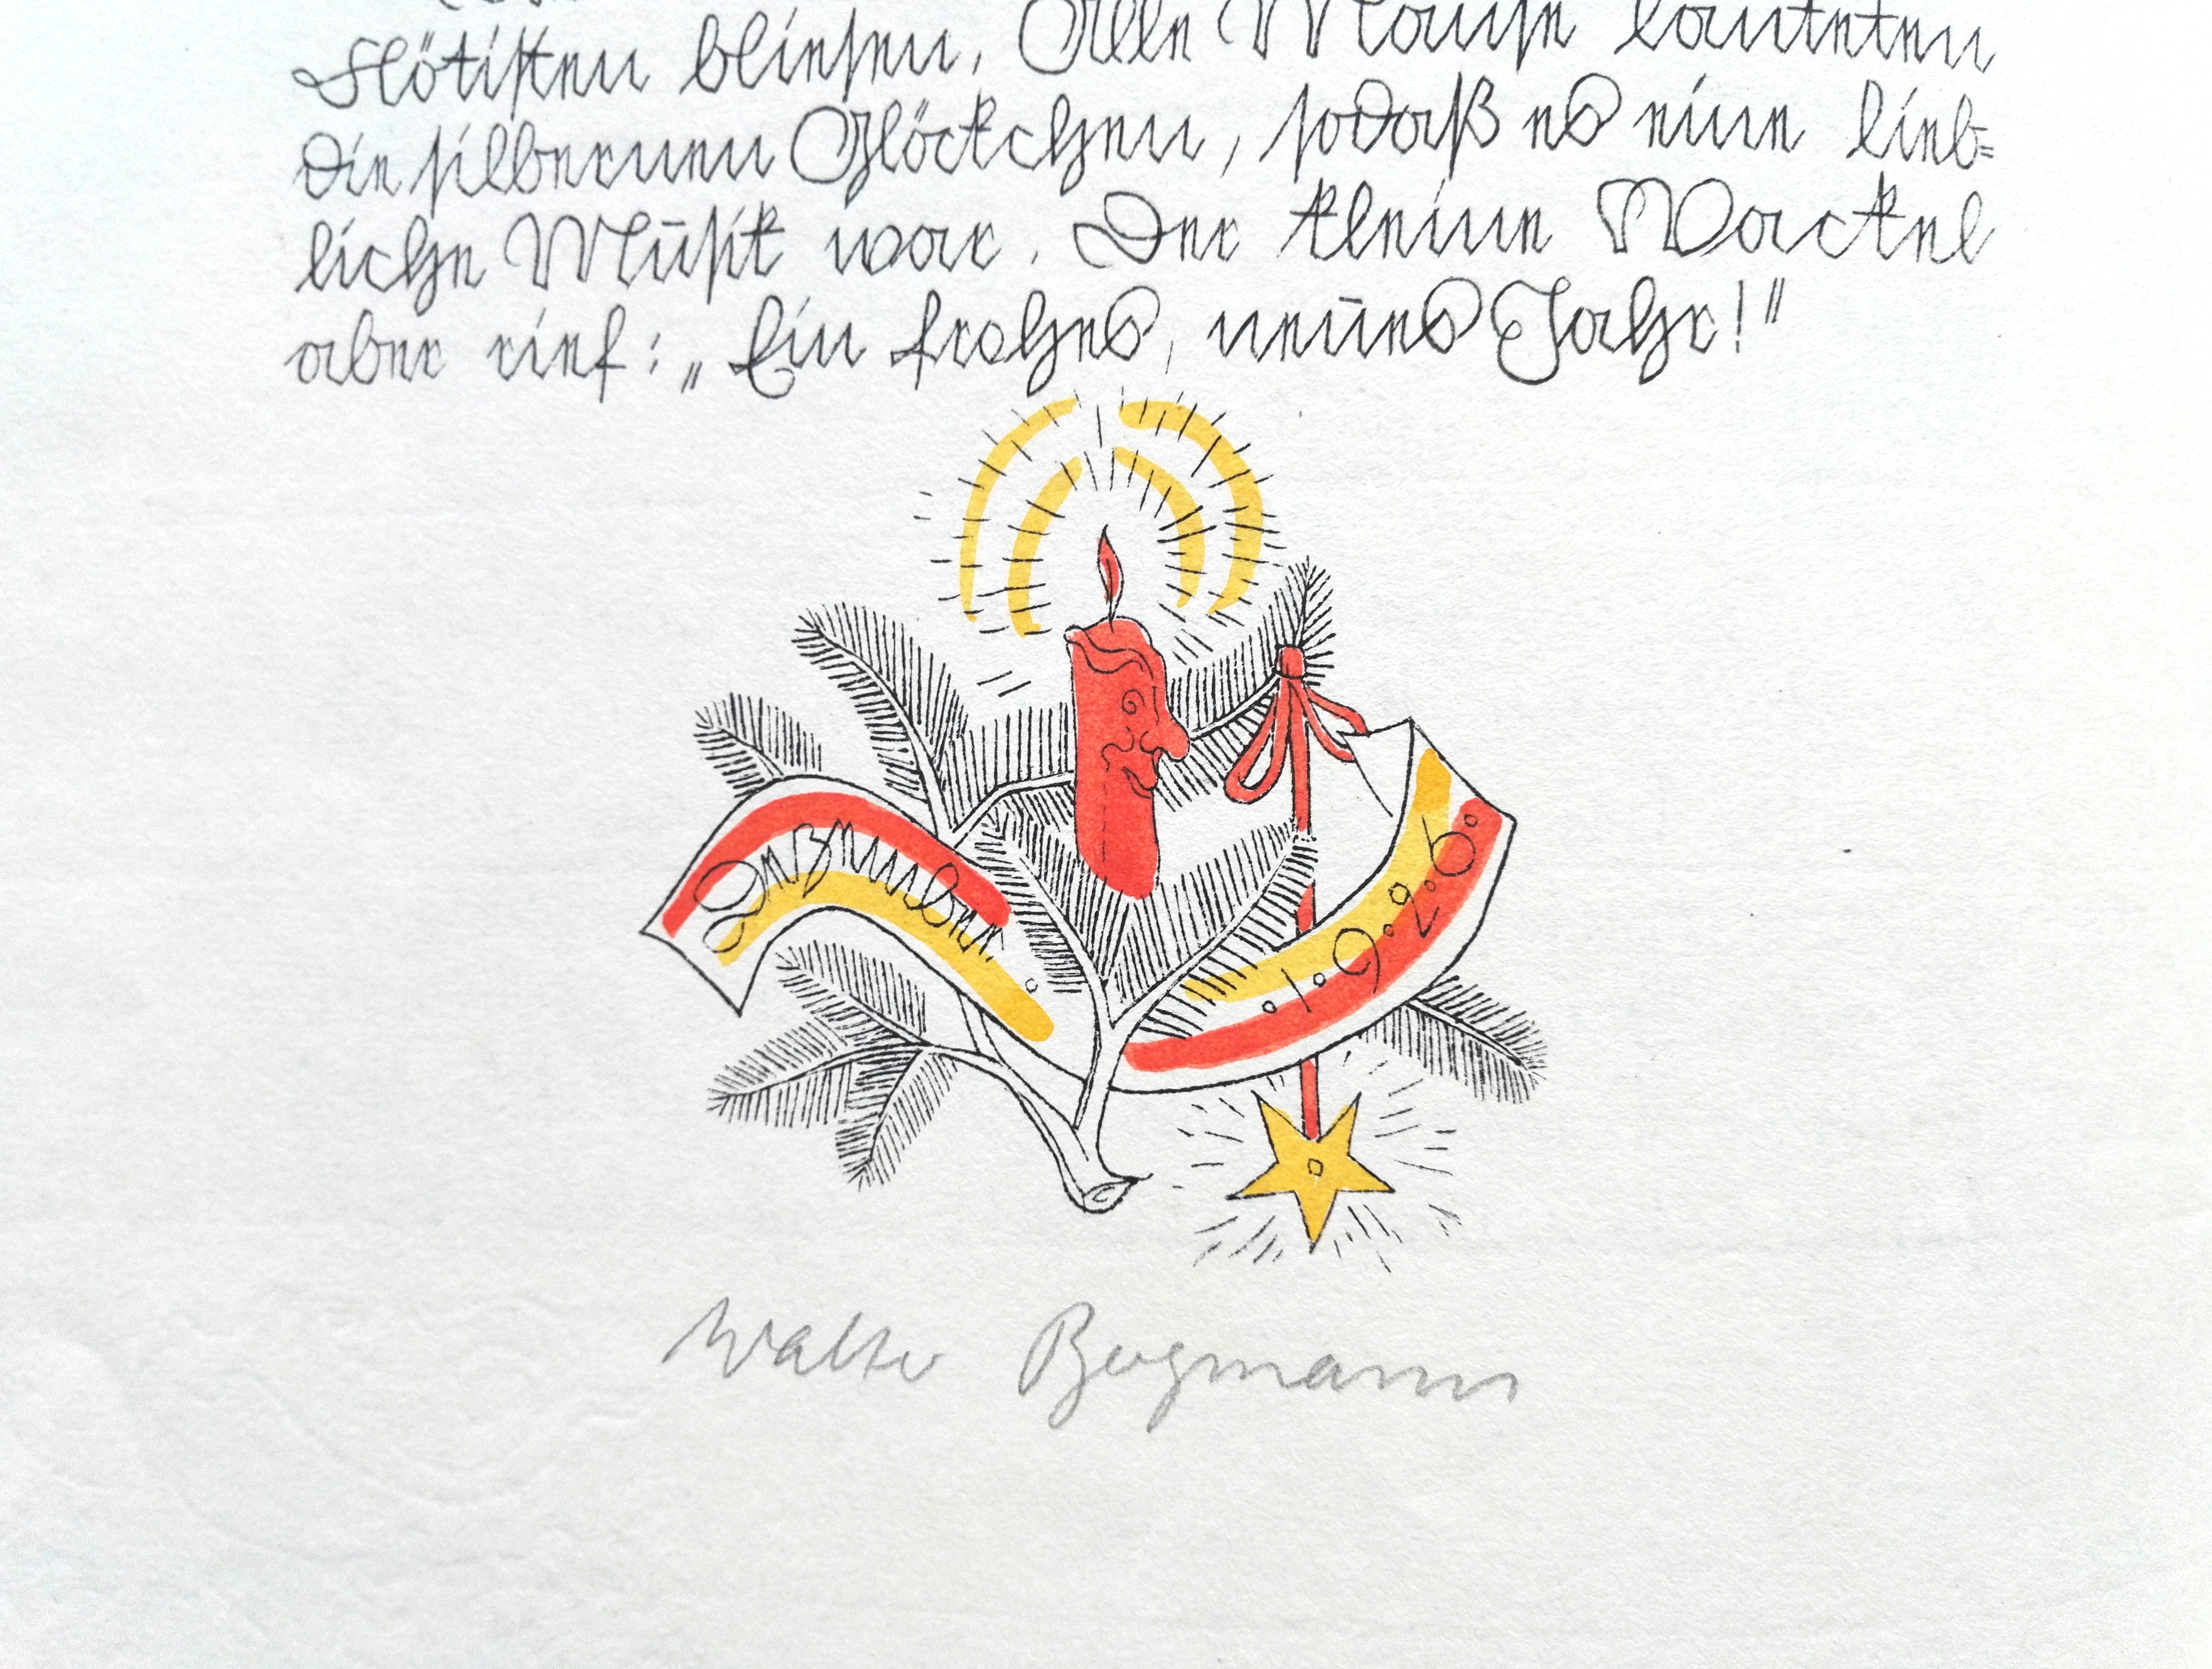 Flötisten bliesen. Alle Mäuse läuteten
die silbernen Glöckchen, sodaß es eine lieb=
liche Musik war. Der kleine Wackel
aber rief: „Ein frohes, neues Jahr!"
Dezember.
.1.9.2.6.
Walter Bergmann